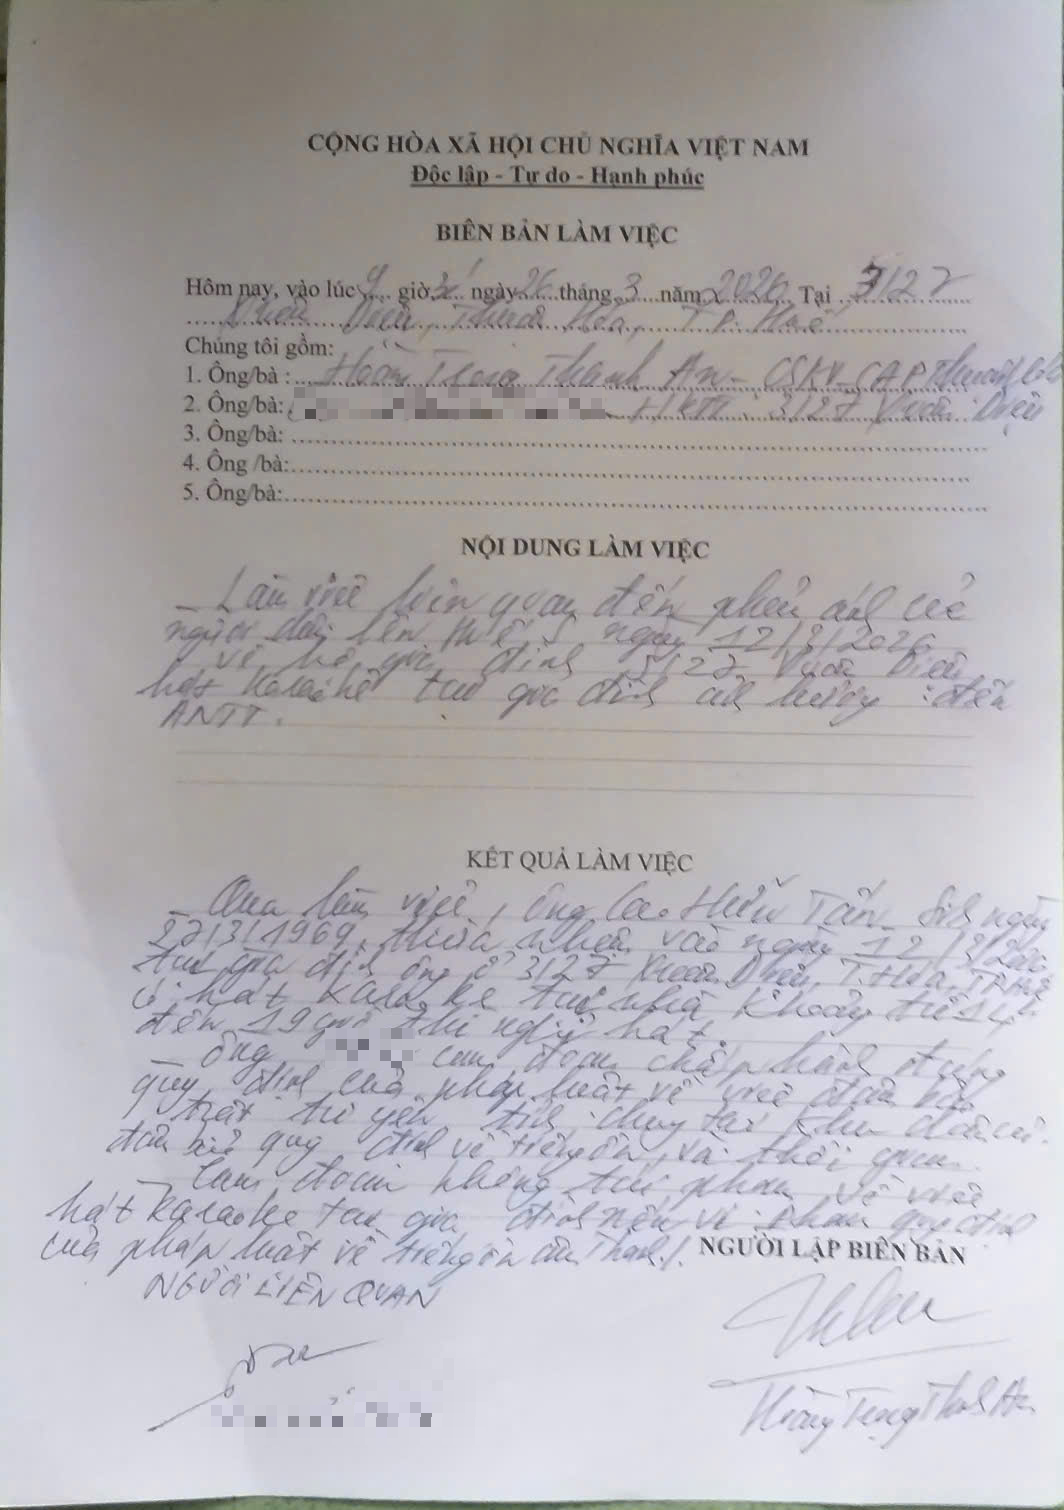 CỘNG HÒA XÃ HỘI CHỦ NGHĨA VIỆT NAM
Độc lập - Tự do - Hạnh phúc
BIÊN BẢN LÀM VIỆC
Hôm nay, vào lúc 9 giờ ngày 26 tháng 3 năm 2026 Tại 3/27
Xuân Diệu, Thuận Hóa, TP. Huế
Chúng tôi gồm:
1. Ông/bà : Hoàng Trọng Thành An - CSKV - CAP Thuận Hóa
2. Ông/bà: HKTT: 3/27 Xuân Diệu
3. Ông/bà:
4. Ông /bà:
5. Ông/bà:
NỘI DUNG LÀM VIỆC
- Làm việc liên quan đến phản ánh của
người dân lên Huế S ngày 12/3/2026
về hộ gia đình 3/27 Xuân Diệu
hát karaoke tại gia đình ảnh hưởng đến
ANTT.
KẾT QUẢ LÀM VIỆC
- Qua làm việc, ông Hữu Tấn sinh ngày
27/3/1969, thừa nhận vào ngày 12/3/2026
tại gia đình ông ở 3/27 Xuân Diệu, T.Hóa, TP Huế
có hát karaoke tại nhà khoảng từ 14
đến 19 giờ thì nghỉ hát.
- Ông cam đoan chấp hành đúng
quy định của pháp luật về việc đảm bảo
trật tự yên tĩnh chung tại khu dân cư.
đảm bảo quy định về tiếng ồn và thời gian.
- Cam đoan không tái phạm về việc
hát karaoke tại gia đình nếu vi phạm quy định
của pháp luật về tiếng ồn âm thanh./.
NGƯỜI LẬP BIÊN BẢN
NGƯỜI LIÊN QUAN
Hoàng Trọng Thành An